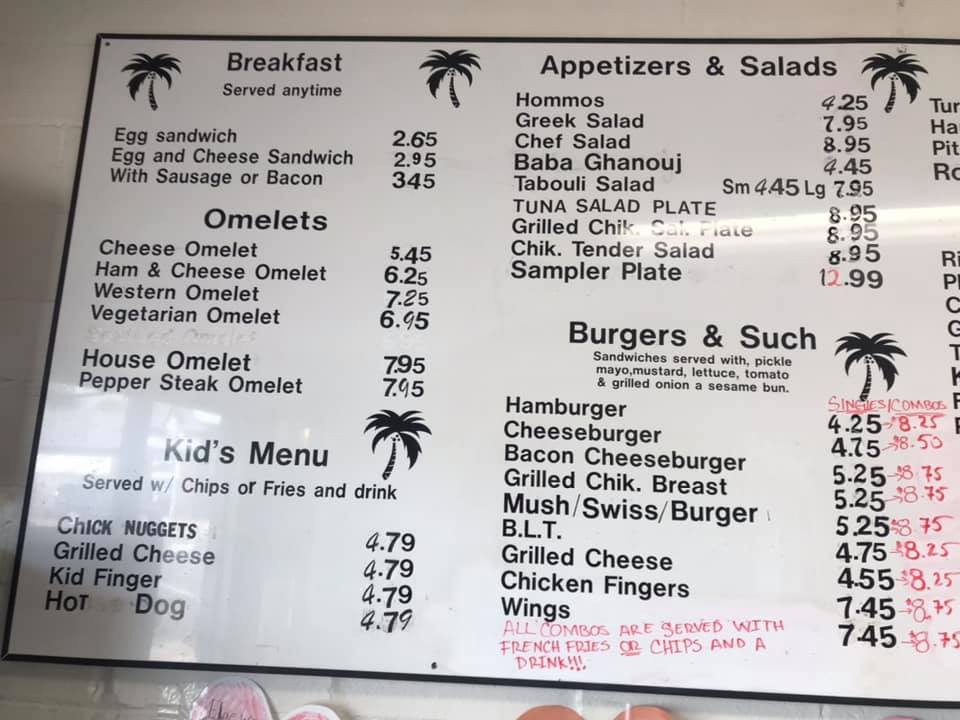 Breakfast
Served anytime
Egg sandwich 2.65
Egg and Cheese Sandwich 2.95
With Sausage or Bacon 345
Omelets
Cheese Omelet 5.45
Ham & Cheese Omelet 6.25
Western Omelet 7.25
Vegetarian Omelet 6.95
House Omelet 7.95
Pepper Steak Omelet 7.95
Kid's Menu
Served w/ Chips or Fries and drink
CHICK NUGGETS 4.79
Grilled Cheese 4.79
Kid Finger 4.79
HOT Dog 4.79
Appetizers & Salads
Hommos 4.25
Greek Salad 7.95
Chef Salad 8.95
Baba Ghanouj 4.45
Tabouli Salad Sm 4.45 Lg 7.95
TUNA SALAD PLATE 8.95
Grilled Chik. Sal. Plate 8.95
Chik. Tender Salad 8.95
Sampler Plate 12.99
Burgers & Such
Sandwiches served with, pickle
mayo,mustard, lettuce, tomato
& grilled onion a sesame bun.
SINGLES/COMBOS
Hamburger 4.25→$8.25
Cheeseburger 4.75→$8.50
Bacon Cheeseburger 5.25→$8.75
Grilled Chik. Breast 5.25→$8.75
Mush/Swiss/Burger 5.25→$8.75
B.L.T. 4.75→$8.25
Grilled Cheese 4.55→$8.25
Chicken Fingers 7.45→$8.75
Wings 7.45→$8.75
ALL COMBOS ARE SERVED WITH
FRENCH FRIES OR CHIPS AND A
DRINK!!!
Tur
Ha
Pit
Ro
Ri